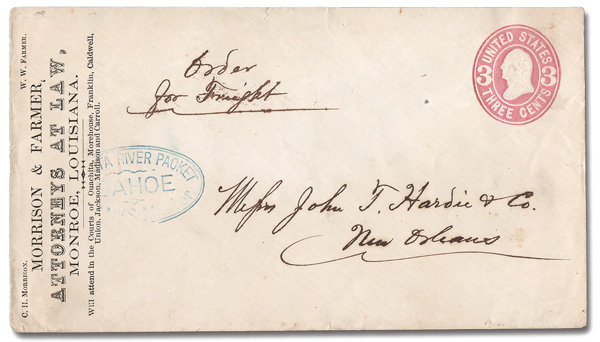 C. H. MORRISON. W. W. FARMER.
MORRISON & FARMER,
ATTORNEYS AT LAW,
MONROE, LOUISIANA.
Will attend in the Courts of Ouachita, Morehouse, Franklin, Caldwell,
Union, Jackson, Madison and Carroll.
Order
for Freight
UNITED STATES
3 3
THREE CENTS
RIVER PACKET
AHOE
Messrs John T. Hardie & Co.
New Orleans